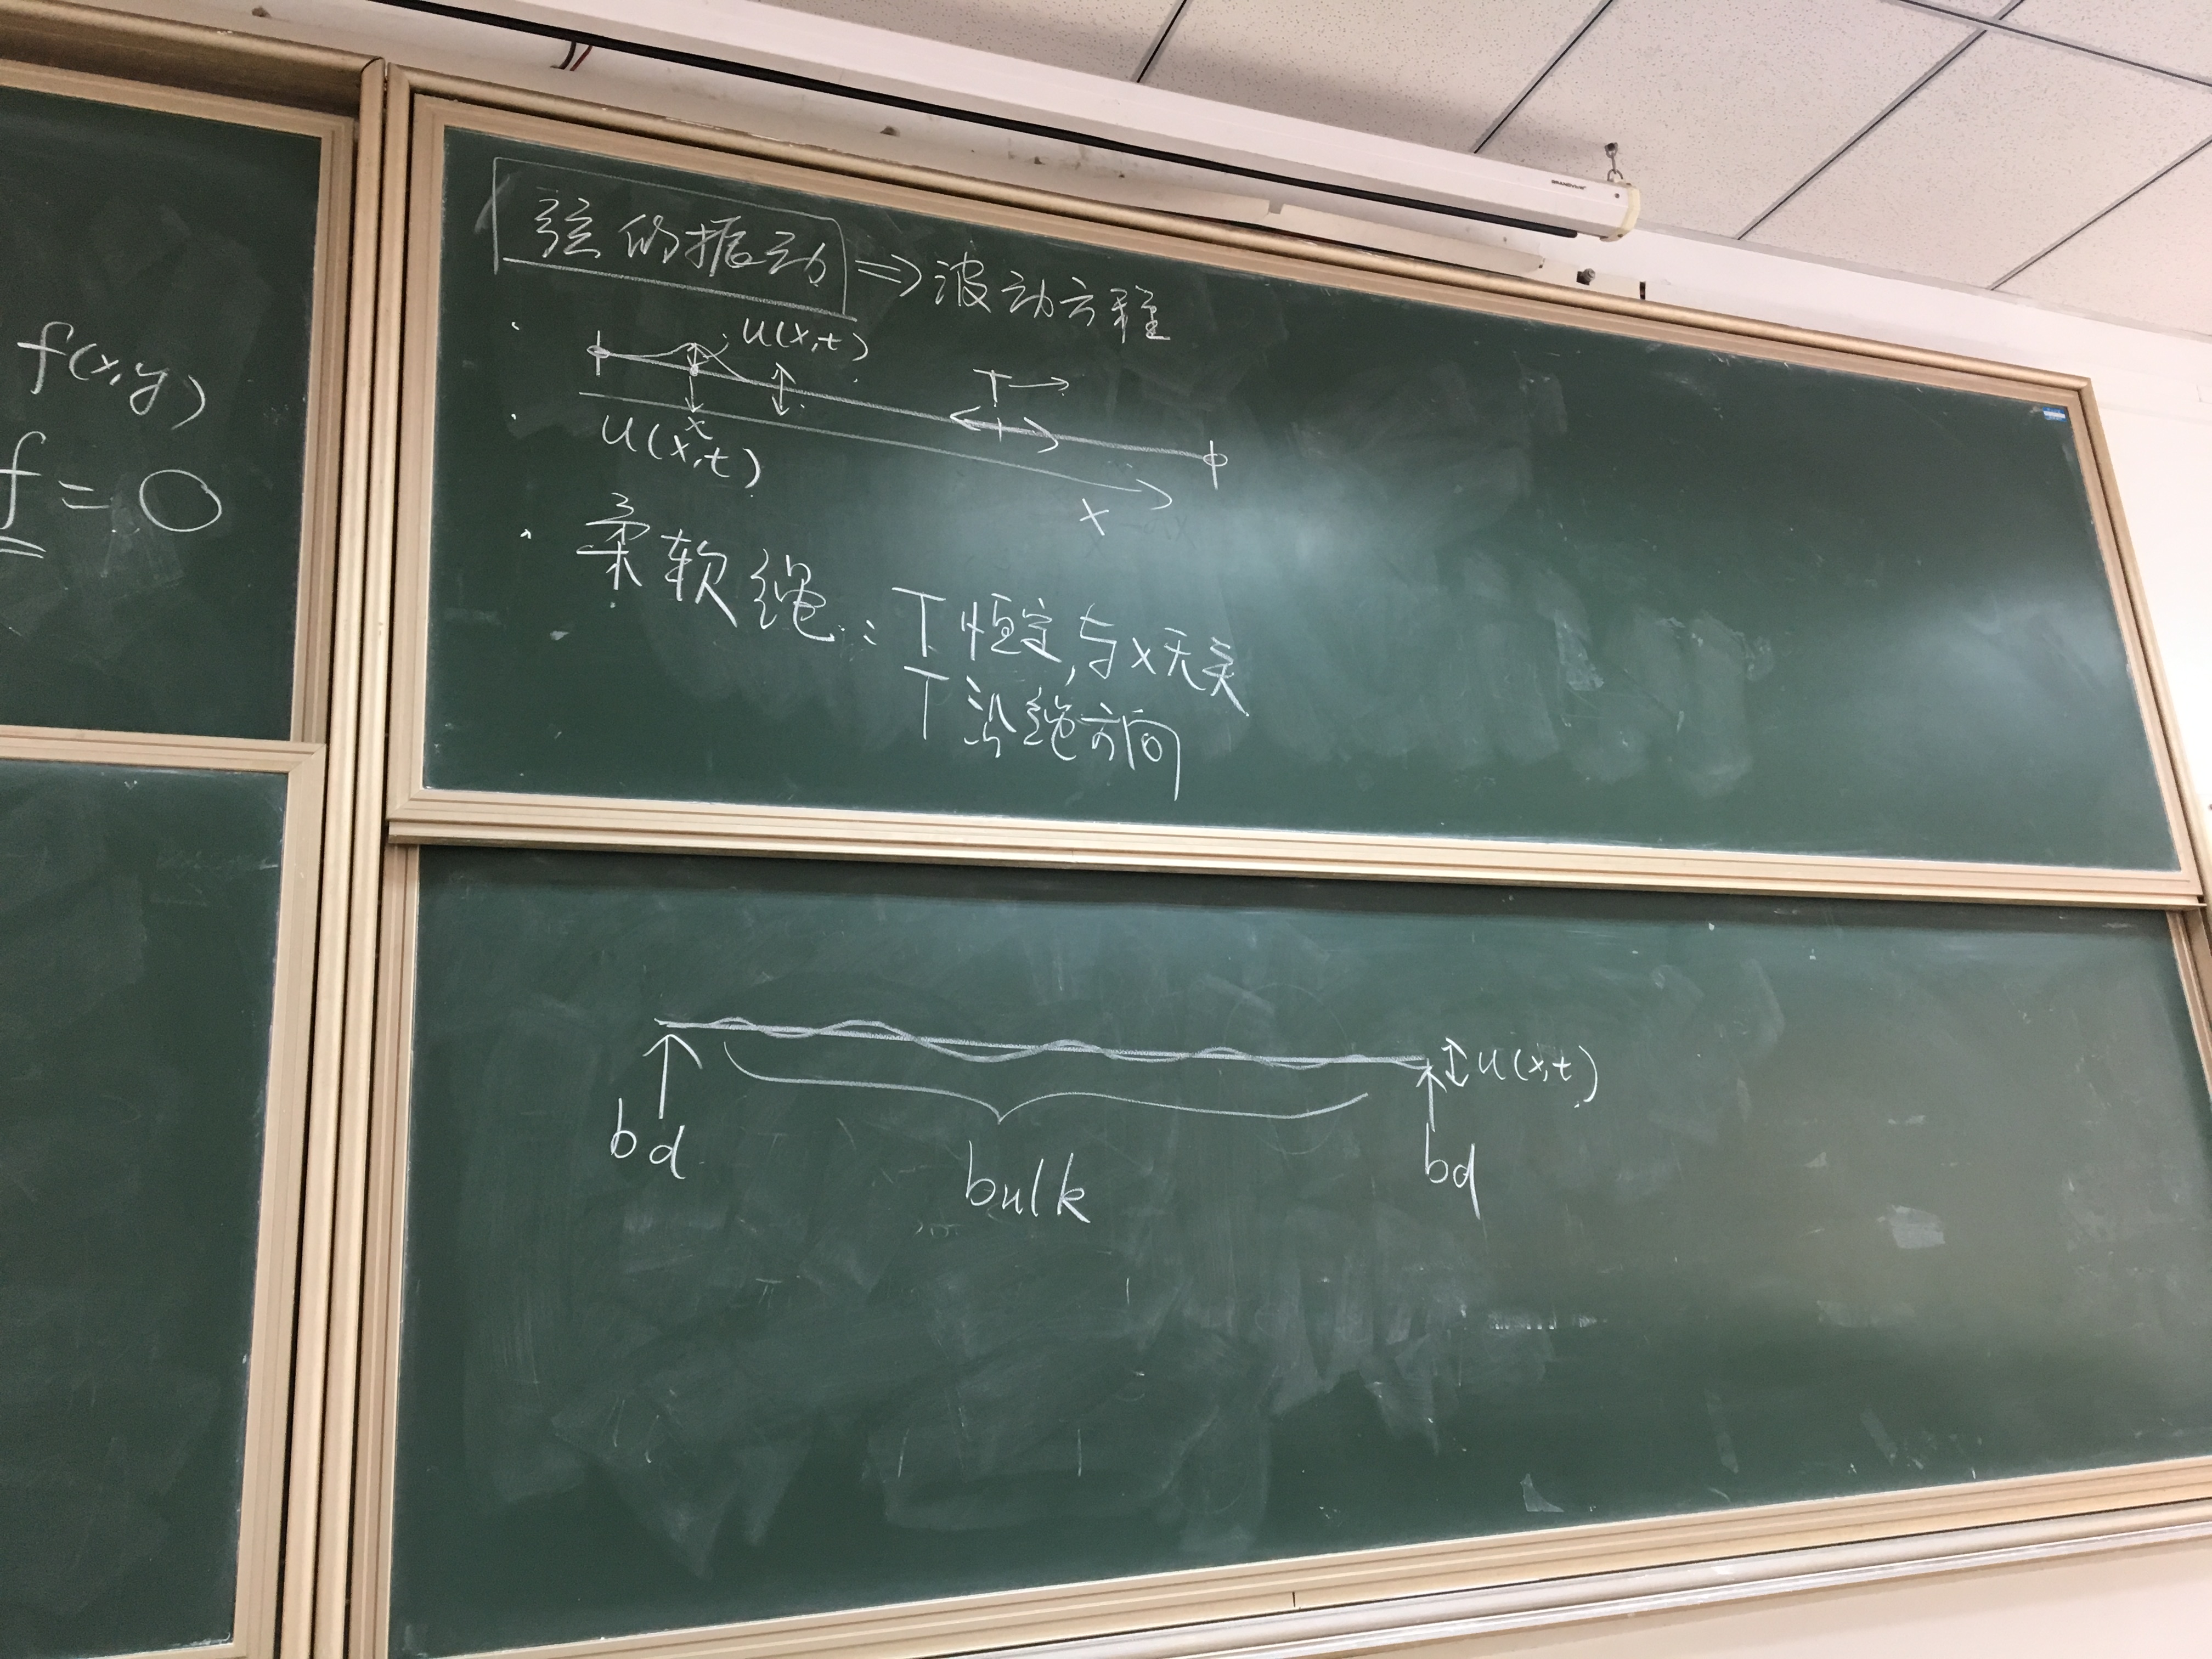 f(x,y)
f = 0
弦的振动 ⇒ 波动方程
u(x,t)
T →
x
u(x,t)
x
柔软绳: T恒定,与x无关
T沿绳方向
u(x,t)
bd
bulk
bd